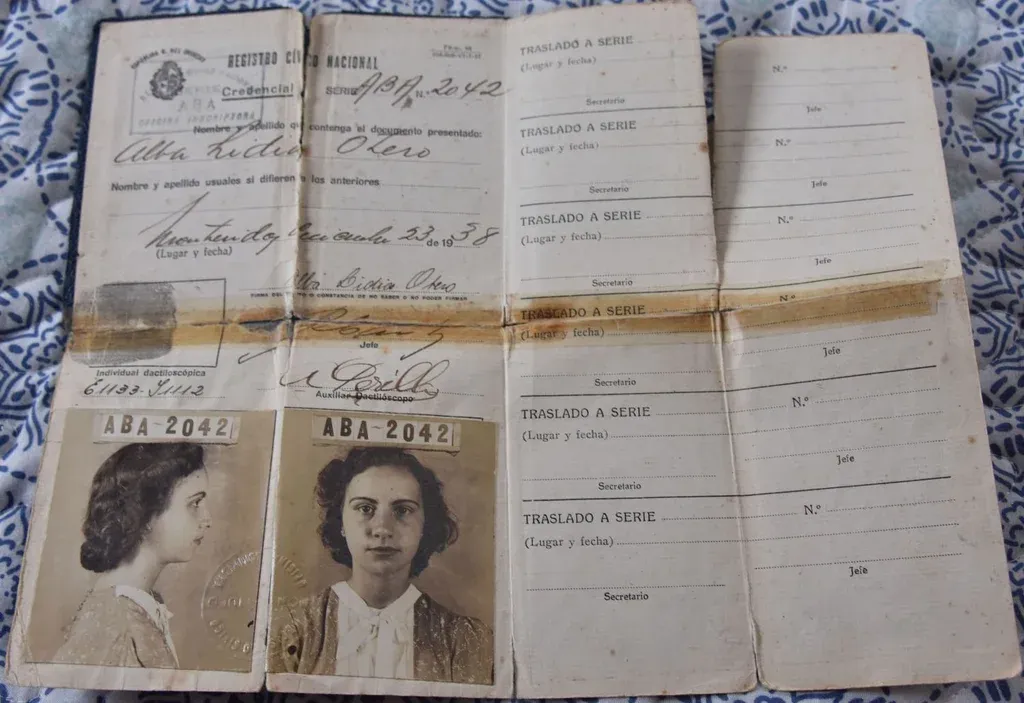 REGISTRO CÍVICO NACIONAL
Credencial SERIE ABA N. 2042
ABA
Nombre y apellido que contenga el documento presentado:
Alba Lidia Otero
Nombre y apellido usuales si difieren a los anteriores
Montevideo, 23 de 1938
(Lugar y fecha)
Alba Lidia Otero
FIRMA O CONSTANCIA DE NO SABER O NO PODER FIRMAR
Jefe
Individual dactiloscópica
Auxiliar Dactilóscopo
E1133-I1112
ABA-2042
ABA-2042
TRASLADO A SERIE N.º
(Lugar y fecha)
Secretario Jefe
TRASLADO A SERIE N.º
(Lugar y fecha)
Secretario Jefe
TRASLADO A SERIE N.º
(Lugar y fecha)
Secretario Jefe
TRASLADO A SERIE N.º
(Lugar y fecha)
Secretario Jefe
TRASLADO A SERIE N.º
(Lugar y fecha)
Secretario Jefe
TRASLADO A SERIE N.º
(Lugar y fecha)
Secretario Jefe